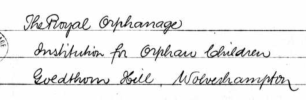 The Royal Orphanage
Institution for Orphan Children
Goldthorn Hill, Wolverhampton